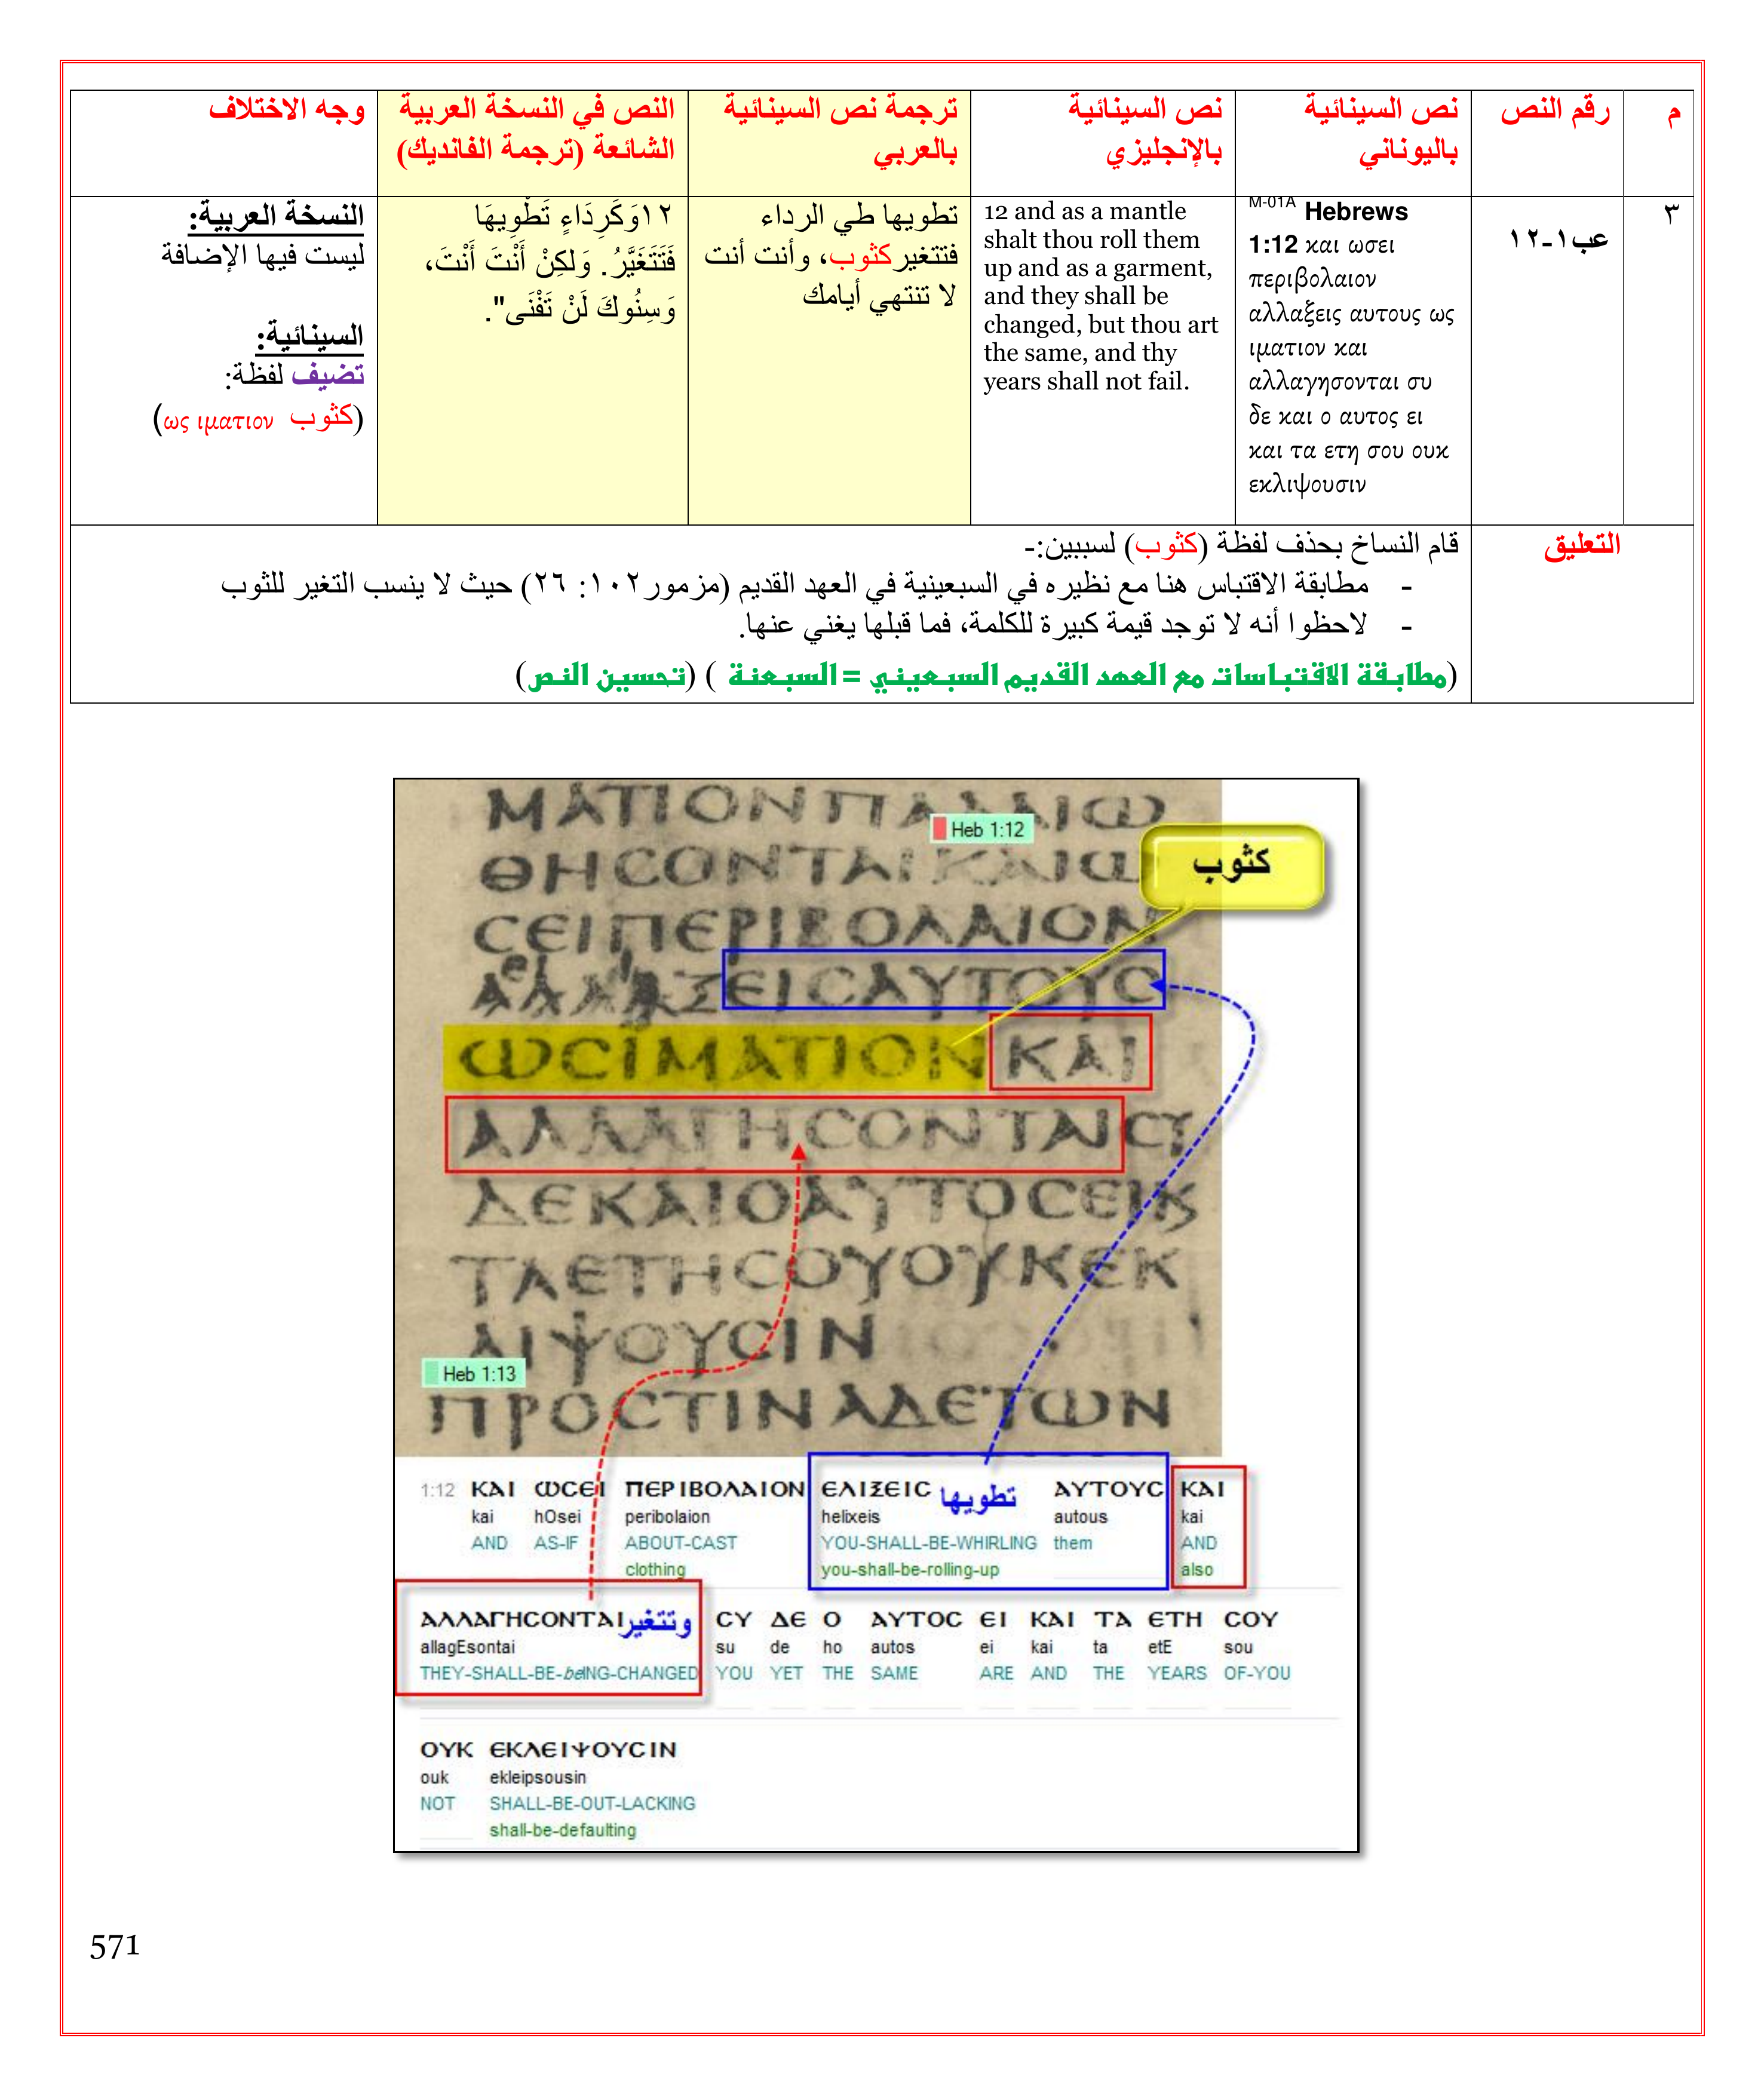 م
رقم النص
نص السينائية
باليوناني
نص السينائية
بالإنجليزي
ترجمة نص السينائية
بالعربي
النص في النسخة العربية
الشائعة (ترجمة الفانديك)
وجه الاختلاف
٣
عب١-١٢
M-01A Hebrews
1:12 και ωσει
περιβολαιον
αλλαξεις αυτους ως
ιματιον και
αλλαγησονται συ
δε και ο αυτος ει
και τα ετη σου ουκ
εκλιψουσιν
12 and as a mantle
shalt thou roll them
up and as a garment,
and they shall be
changed, but thou art
the same, and thy
years shall not fail.
تطويها طي الرداء
فتتغيركثوب، وأنت أنت
لا تنتهي أيامك
١٢وَكَرِدَاءٍ تَطْوِيهَا
فَتَتَغَيَّرُ. وَلكِنْ أَنْتَ أَنْتَ،
وَسِنُوكَ لَنْ تَفْنَى".
النسخة العربية:
ليست فيها الإضافة
السينائية:
تضيف لفظة:
(كثوب ως ιματιον)
التعليق
قام النساخ بحذف لفظة (كثوب) لسببين:-
- مطابقة الاقتباس هنا مع نظيره في السبعينية في العهد القديم (مزمور١٠٢: ٢٦) حيث لا ينسب التغير للثوب
- لاحظوا أنه لا توجد قيمة كبيرة للكلمة، فما قبلها يغني عنها.
(مطابقة الاقتباسات مع العهد القديم السبعيني = السبعنة ) (تحسين النص)
ΜΑΤΙΟΝΠΑΛΑΙΩ
Heb 1:12
ΘΗCΟΝΤΑΙΚΑΙΩ
كثوب
CΕΙΠΕΡΙΒΟΛΑΙΟΝ
ΑΛΛΑΞΕΙCΑΥΤΟΥC
ΩCΙΜΑΤΙΟΝΚΑΙ
ΑΛΛΑΓΗCΟΝΤΑΙCΥ
ΔΕΚΑΙΟΑΥΤΟCΕΙΚ
ΤΑΕΤΗCΟΥΟΥΚΕΚ
ΛΙΨΟΥCΙΝ
Heb 1:13
ΠΡΟCΤΙΝΑΔΕΤΩΝ
1:12 ΚΑΙ ΩCΕΙ ΠΕΡΙΒΟΛΑΙΟΝ ΕΛΙΞΕΙC تطويها ΑΥΤΟΥC ΚΑΙ
kai hOsei peribolaion helixeis autous kai
AND AS-IF ABOUT-CAST YOU-SHALL-BE-WHIRLING them AND
clothing you-shall-be-rolling-up also
ΑΛΛΑΓΗCΟΝΤΑΙ وتتغير CΥ ΔΕ Ο ΑΥΤΟC ΕΙ ΚΑΙ ΤΑ ΕΤΗ CΟΥ
allagEsontai su de ho autos ei kai ta etE sou
THEY-SHALL-BE-beING-CHANGED YOU YET THE SAME ARE AND THE YEARS OF-YOU
ΟΥΚ ΕΚΛΕΙΨΟΥCΙΝ
ouk ekleipsousin
NOT SHALL-BE-OUT-LACKING
shall-be-defaulting
571